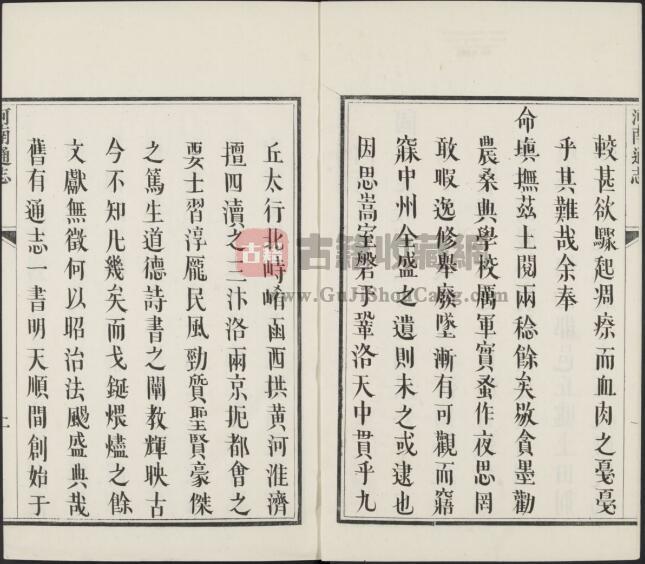 河南通志
較甚欲驟起凋瘵而血肉之戞戞
乎其難哉余奉
命塡撫茲土閱兩稔餘矣敭貪墨勸
農桑典學校厲軍實蚤作夜思罔
敢暇逸修舉廢墜漸有可觀而竊
寐中州全盛之遺則未之或逮也
因思嵩室磐乎鞏洛天中貫乎九
丘太行北峙崤函西拱黄河淮濟
擅四瀆之三汴洛兩京扼都會之
要士習淳龐民風勁質聖賢豪傑
之篤生道德詩書之闡教輝映古
今不知凡幾矣而戈鋋煨燼之餘
文獻無徵何以昭治法颺盛典哉
舊有通志一書明天順間創始于
河南通志
上
古籍
古籍收藏网
www.GuJiShouCang.com